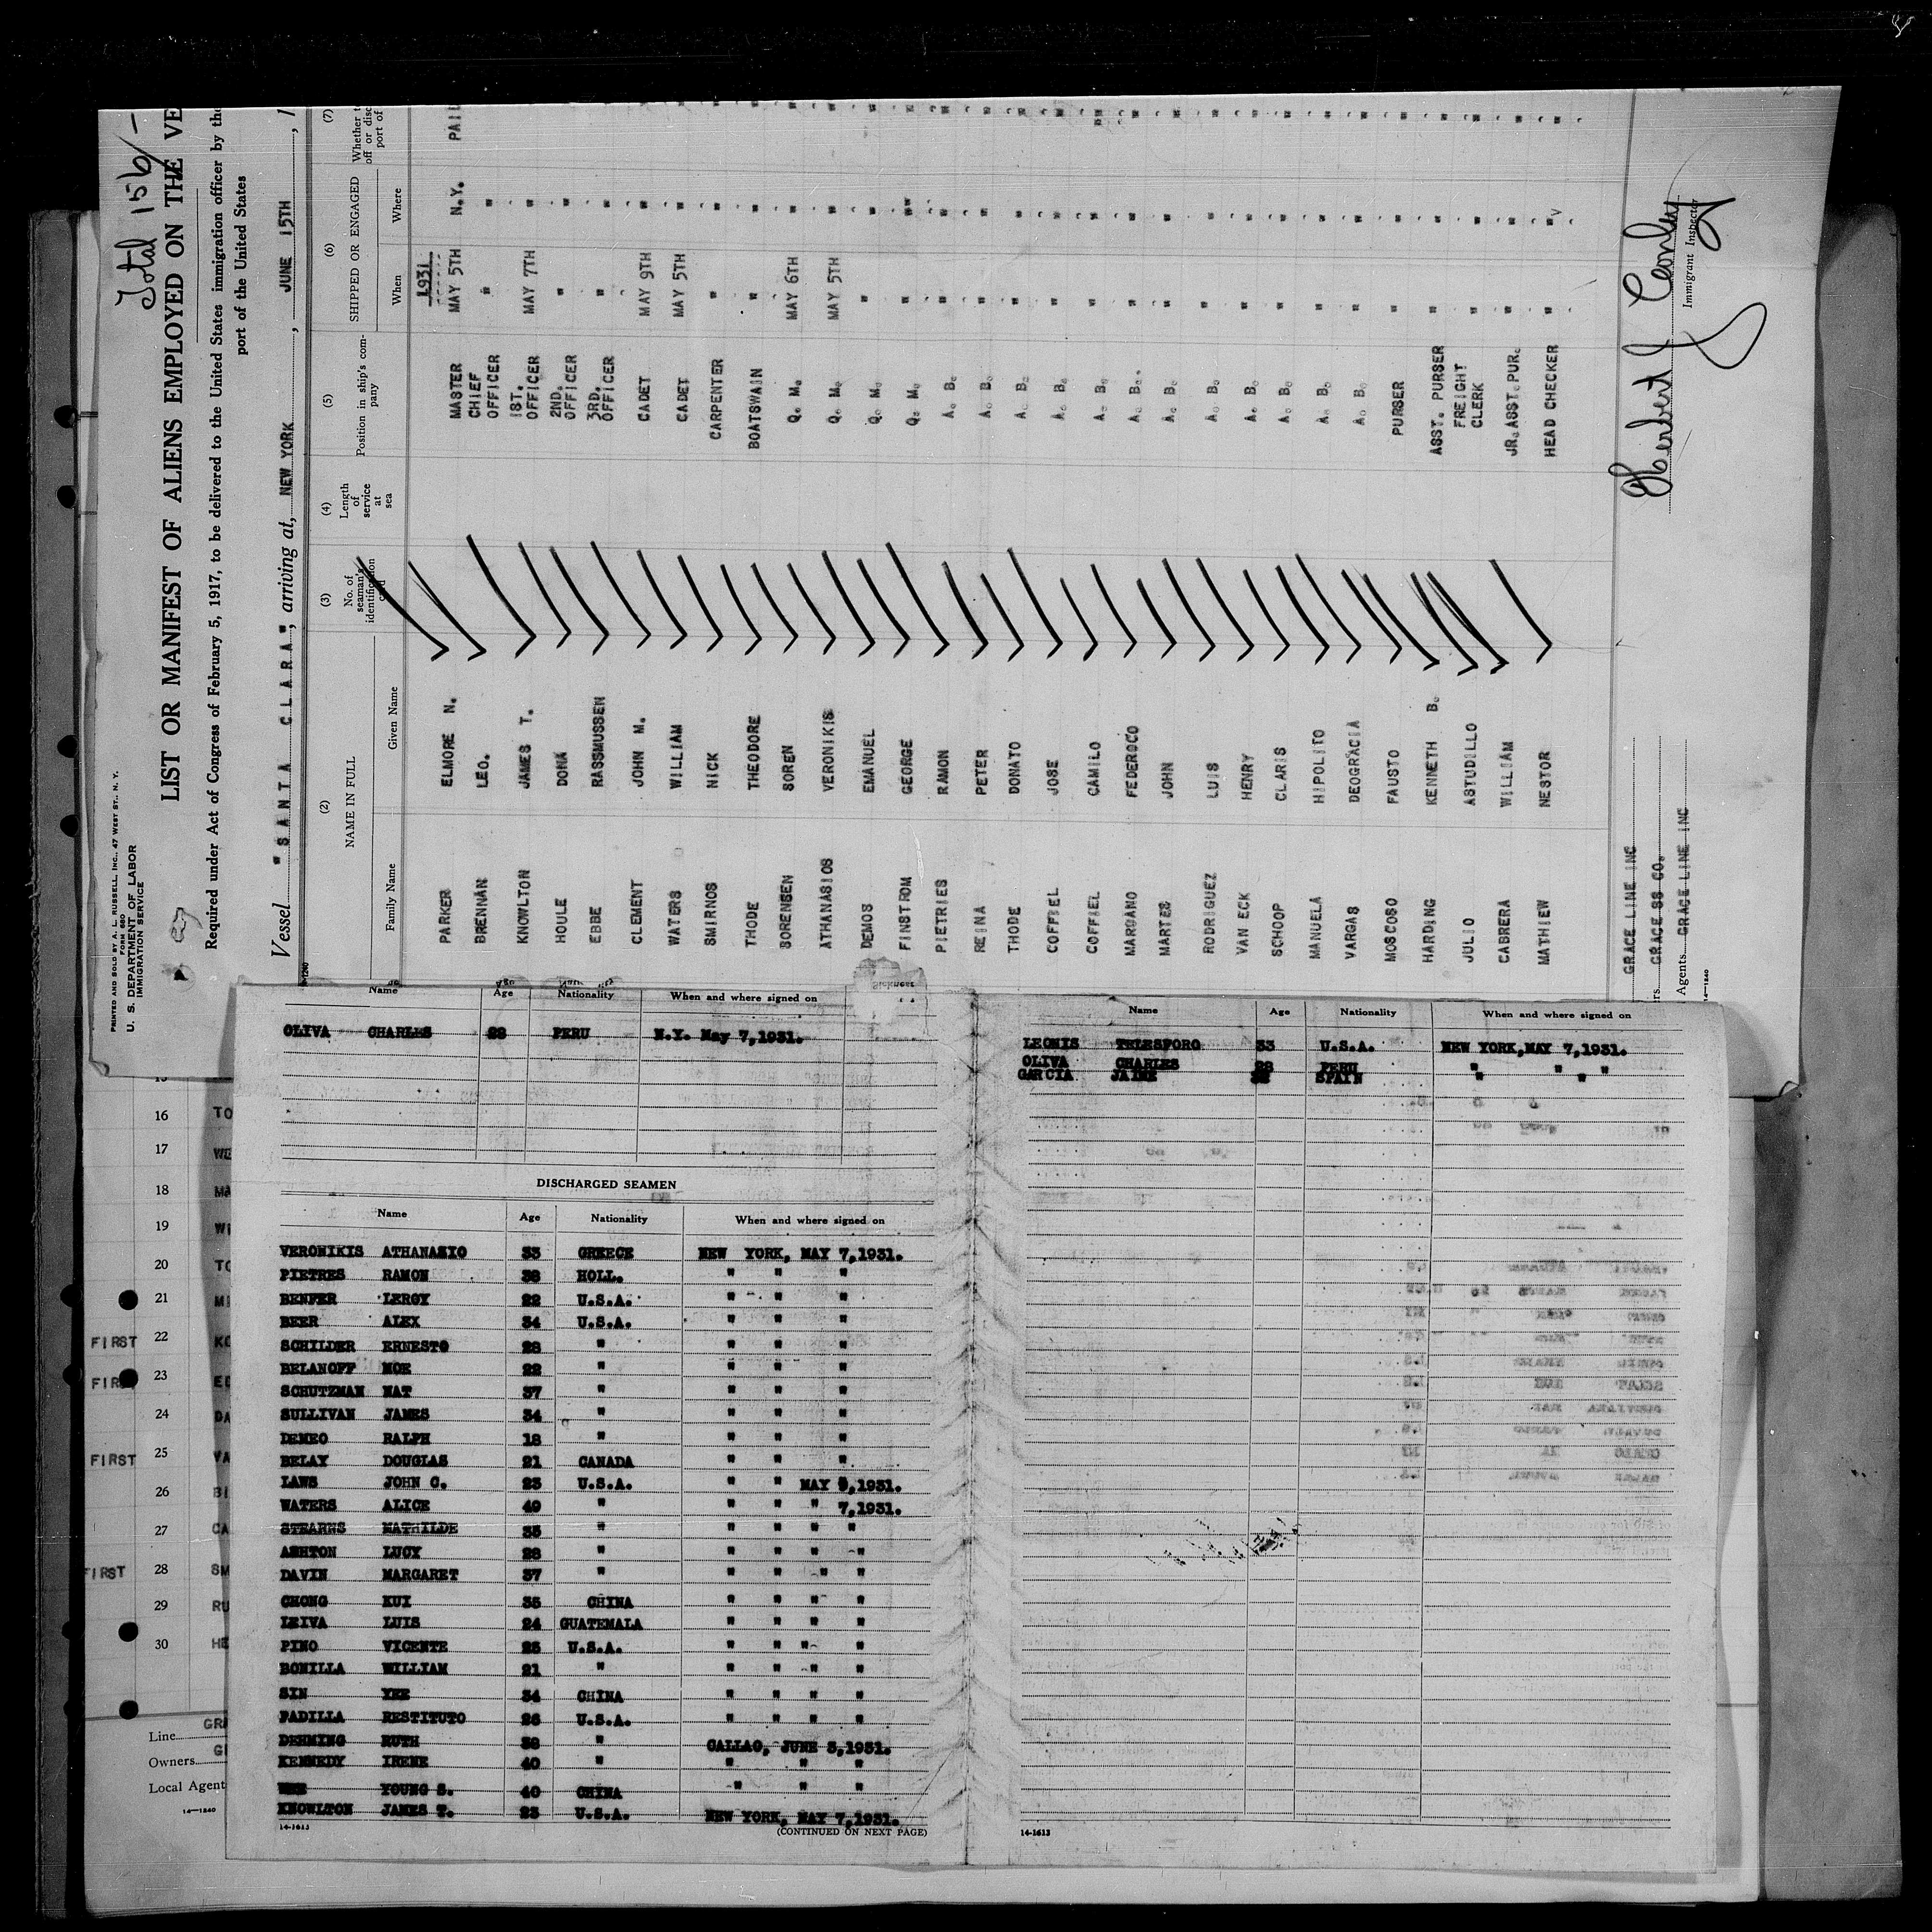 Total 156/-
PRINTED AND SOLD BY A. L. RUSSELL, INC., 47 WEST ST., N. Y.
FORM 680
U. S. DEPARTMENT OF LABOR
IMMIGRATION SERVICE
LIST OR MANIFEST OF ALIENS EMPLOYED ON THE VE
Required under Act of Congress of February 5, 1917, to be delivered to the United States immigration officer by the
port of the United States
Vessel "SANTA CLARA", arriving at, NEW YORK, JUNE 15TH, 1
(2) (3) (4) (5) (6) (7)
NAME IN FULL No. of seaman's identification card Length of service at sea Position in ship's company SHIPPED OR ENGAGED
Family Name Given Name When Where
1931
PARKER ELMORE N. MASTER MAY 5TH N.Y. PAI
BRENNAN LEO. CHIEF OFFICER " "
KNOWLTON JAMES T. 1ST. OFFICER MAY 7TH "
HOULE DONA 2ND. OFFICER " "
EBBE RASSMUSSEN 3RD. OFFICER " "
CLEMENT JOHN M. CADET MAY 9TH "
WATERS WILLIAM CADET MAY 5TH "
SMIRNOS NICK CARPENTER " "
THODE THEODORE BOATSWAIN " "
SORENSEN SOREN Q. M. MAY 6TH "
ATHANASIOS VERONIKIS Q. M. MAY 5TH "
DEMOS EMANUEL Q. M. " "
FINSTROM GEORGE Q. M. " "
PIETRIES RAMON A. B. " "
REINA PETER A. B. " "
THODE DONATO A. B. " "
COFFIEL JOSE A. B. " "
COFFIEL CAMILO A. B. " "
MARGANO FEDEROCO A. B. " "
MARTES JOHN A. B. " "
RODRIGUEZ LUIS A. B. " "
VAN ECK HENRY A. B. " "
SCHOOP CLARIS A. B. " "
MANUELA HIPOLITO A. B. " "
VARGAS DEOGRACIA A. B. " "
MOSCOSO FAUSTO PURSER " "
HARDING KENNETH B. ASST. PURSER " "
JULIO ASTUDILLO FREIGHT CLERK " "
CABRERA WILLIAM JR. ASST. PUR. " "
MATHIEW NESTOR HEAD CHECKER " "
GRACE LINE INC
GRACE SS CO.
Agents GRACE LINE INC
14-1240
Herbert J Conley
Immigrant Inspector
Name Age Nationality When and where signed on
OLIVA CHARLES 28 PERU N.Y. May 7,1931.
DISCHARGED SEAMEN
Name Age Nationality When and where signed on
VERONIKIS ATHANASIO 33 GREECE NEW YORK, MAY 7,1931.
PIETRES RAMON 38 HOLL. " " "
BENFER LEROY 22 U.S.A. " " "
BEER ALEX 34 U.S.A. " " "
SCHILDER ERNESTO 28 " " " "
BELANOFF MOE 22 " " " "
SCHUTZMAN NAT 37 " " " "
SULLIVAN JAMES 34 " " " "
DEMEO RALPH 18 " " " "
BELAY DOUGLAS 21 CANADA " " "
LAWS JOHN C. 23 U.S.A. " " MAY ,1931.
WATERS ALICE 49 " " " " 7,1931.
STEARNS MATHILDE 35 " " " " "
ASHTON LUCY 28 " " " " "
DAVIN MARGARET 37 " " " " "
CHONG KUI 35 CHINA " " " "
LEIVA LUIS 24 GUATEMALA " " " "
PINO VICENTE 25 U.S.A. " " " "
BONILLA WILLIAM 21 " " " " "
SIN YEE 34 CHINA " " " "
PADILLA RESTITUTO 26 U.S.A. " " " "
DEHMING RUTH 38 " CALLAO, JUNE 3,1931.
KENNEDY IRENE 40 " " " "
YOUNG S. 40 CHINA " " "
KNOWLTON JAMES T. 23 U.S.A. NEW YORK, MAY 7,1931.
14-1613
(CONTINUED ON NEXT PAGE)
Name Age Nationality When and where signed on
LEONIS TELESFORO 33 U.S.A. NEW YORK,MAY 7,1931.
OLIVA CHARLES 28 PERU " " "
GARCIA JAIME SPAIN " "
14-1613
16 TO
17 WE
18 MA
19 WI
20 TO
21 MI
FIRST 22 KO
FIRST 23 ED
24 DA
FIRST 25 VA
26 BI
27 CA
FIRST 28 SM
29 RU
30 HE
Line GRA
Owners G
Local Agent
14-1240